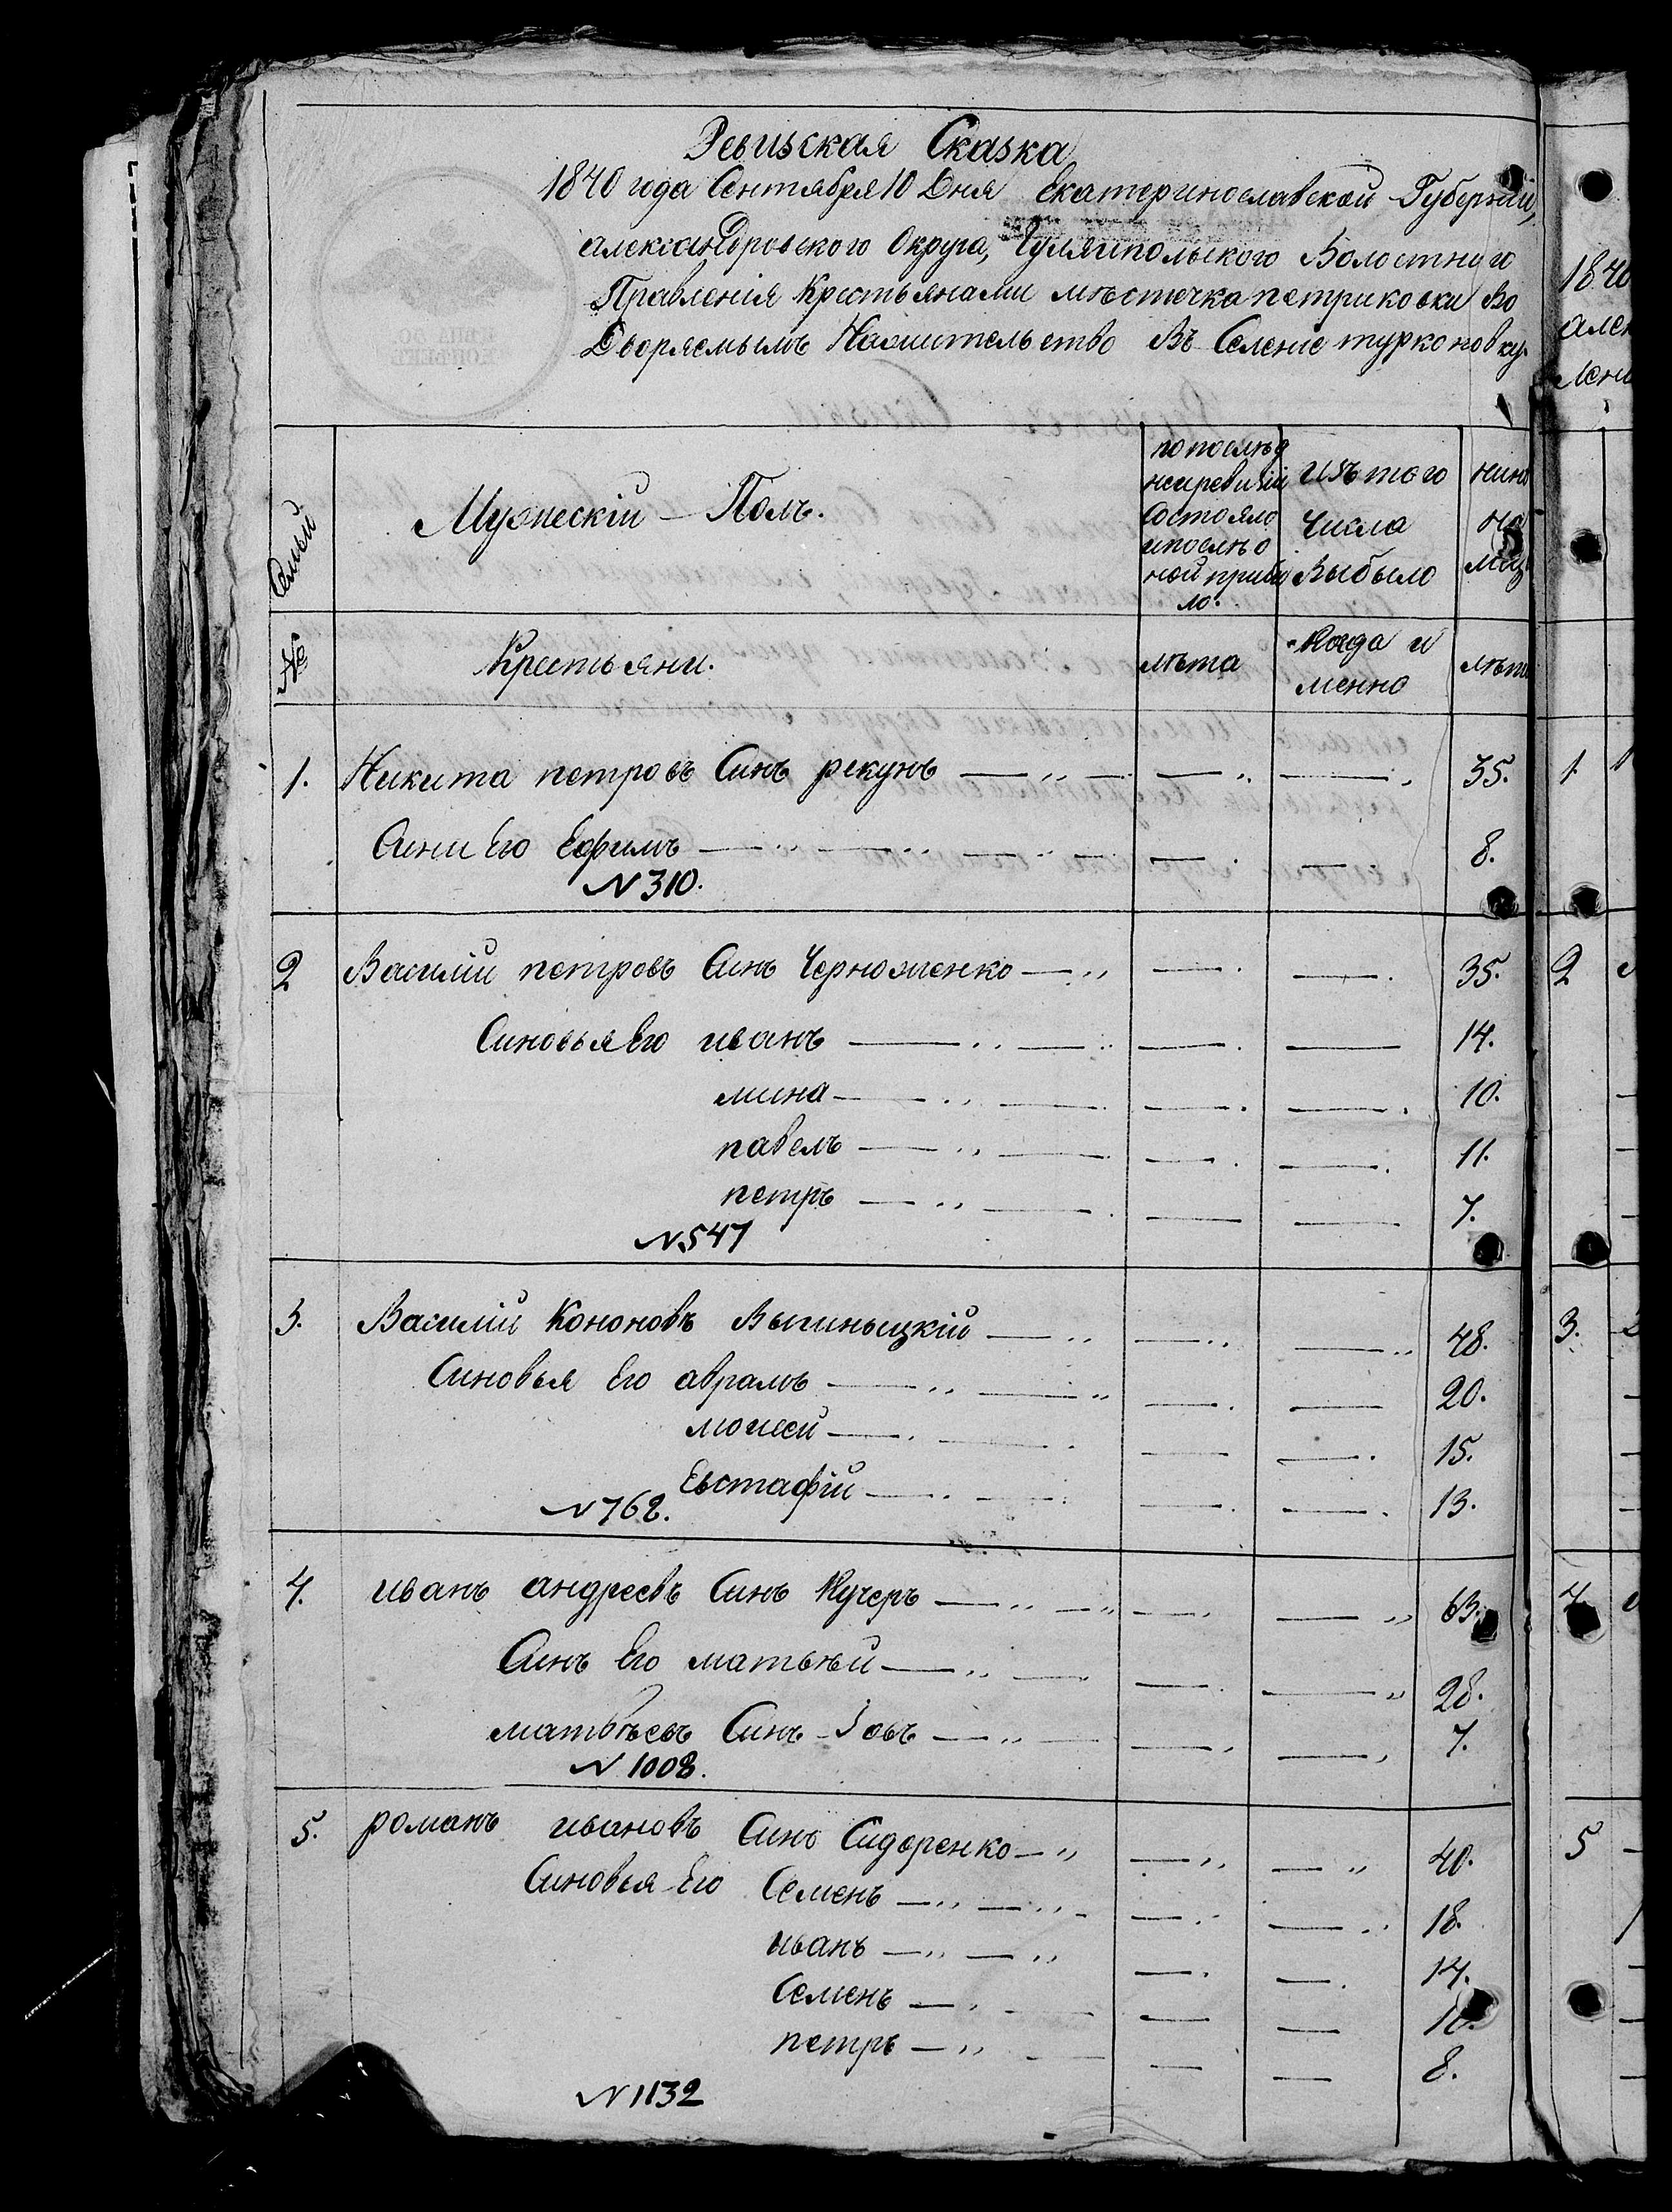 Ревизская Сказка
1840 года Сентября 10 Дня Екатеринославской Губерний,
александровского Округа, Гуляйпольского Волостного
Правления Крестьянами мѣстечка петриковки Во
Дворяемымъ На жительство Въ Селение турконовку.
Семьи
Мужескій – Полъ.
по послѣд
неи ревизіи
Состояло
и послѣ о
ной прибы
ло.
изъ того
Числа
Выбыло
нинѣ
на
лиц
№
Крестьяни.
лѣта
Когда и
менно
лѣта
1. Никита петровъ Синъ рекунъ 35.
Сини Его Ефимъ 8.
N 310.
2 Василий петровъ Синъ Черноженко 35.
Синовья Его иванъ 14.
мина 10.
павелъ 11.
петръ 7.
N 547
3. Василий Кононовъ 48.
Синовья Его аврамъ 20.
моисей 15.
Евстафій 13.
N 762.
4. иванъ андреевъ Синъ Кучеръ 63.
Синъ Его матвѣй 28.
матвѣевъ Синъ Іовъ 7.
N 1008.
5. романъ ивановъ Синъ Сидоренко 40.
Синовья Его Семенъ 18.
иванъ 14.
Семенъ 10.
петръ 8.
N 1132
1840
1.
2
3.
4.
5